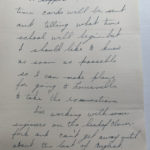 time cards will be sent
and telling what time
school will begin but
I should like to know
as soon as possible
so I can make plans
for going to Louisville
to take the examinations
I am working with some
engineers on the Licking River
fork and can't get away until
about the last of August